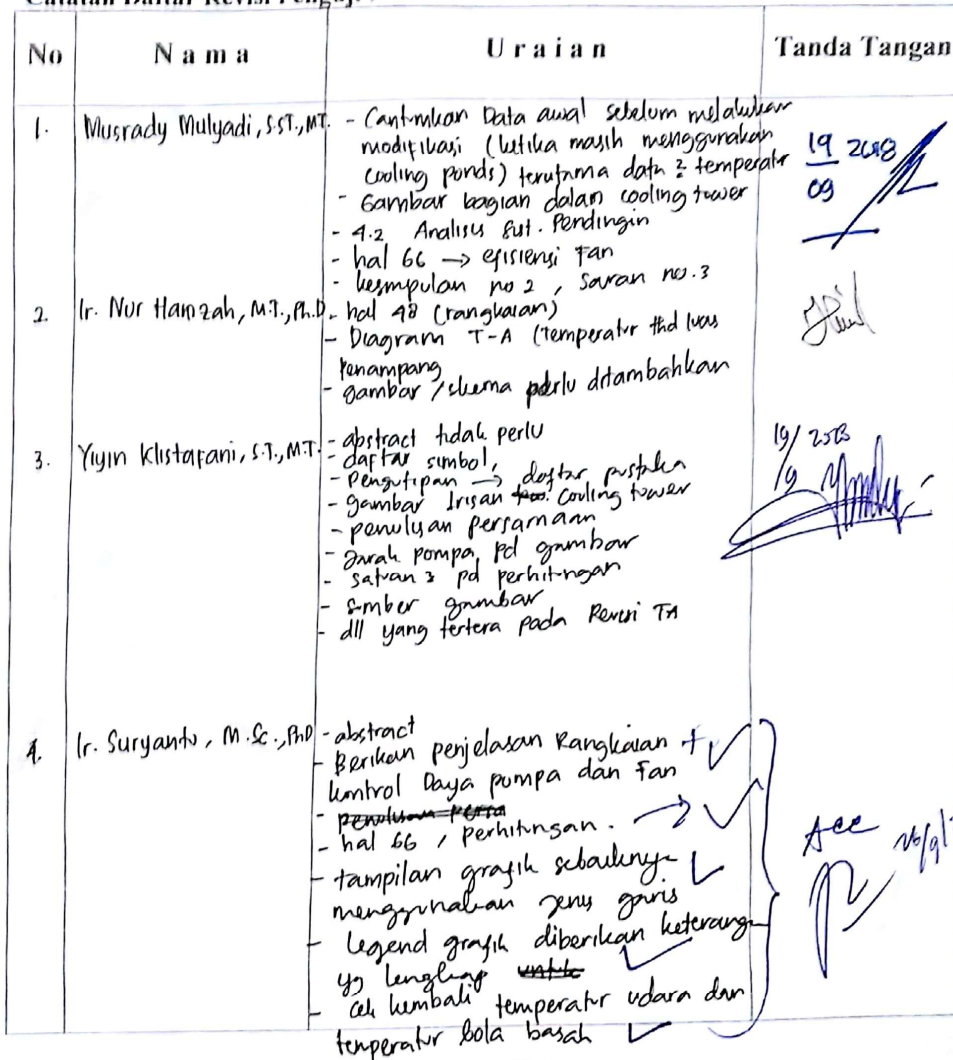 Catatan Daftar Revisi Penguji
No Nama Uraian Tanda Tangan
1. Musrady Mulyadi, S.ST., MT. - Cantumkan Data awal sebelum melakukan
modifikasi (ketika masih menggunakan
cooling ponds) terutama data2 temperatur
- Gambar bagian dalam cooling tower
- 4.2 Analisis Sut. Pendingin
- hal 66 → efisiensi Fan
- kesimpulan no 2, Saran no. 3
19 2018
09
2. Ir. Nur Hamzah, M.T., Ph.D - hal 48 (rangkaian)
- Diagram T-A (temperatur thd luas
penampang
- gambar / skema perlu ditambahkan
3. Yiyin Klistafani, S.T., M.T. - abstract tidak perlu
- daftar simbol,
- Pengutipan → daftar pustaka
- gambar Irisan Cooling tower
- penulisan persamaan
- Jarak pompa pd gambar
- satuan2 pd perhitungan
- sumber gambar
- dll yang tertera pada Revisi TA
19/
/9
4. Ir. Suryanto, M.Sc., PhD - abstract
- Berikan penjelasan Rangkaian +
kontrol Daya pompa dan Fan
- penulisan Persa
- hal 66, perhitungan. →
- tampilan grafik sebaiknya
menggunakan jenis garis
- legend grafik diberikan keterang
yg lengkap untuk
- cek kembali temperatur udara dan
temperatur bola basah
Acc